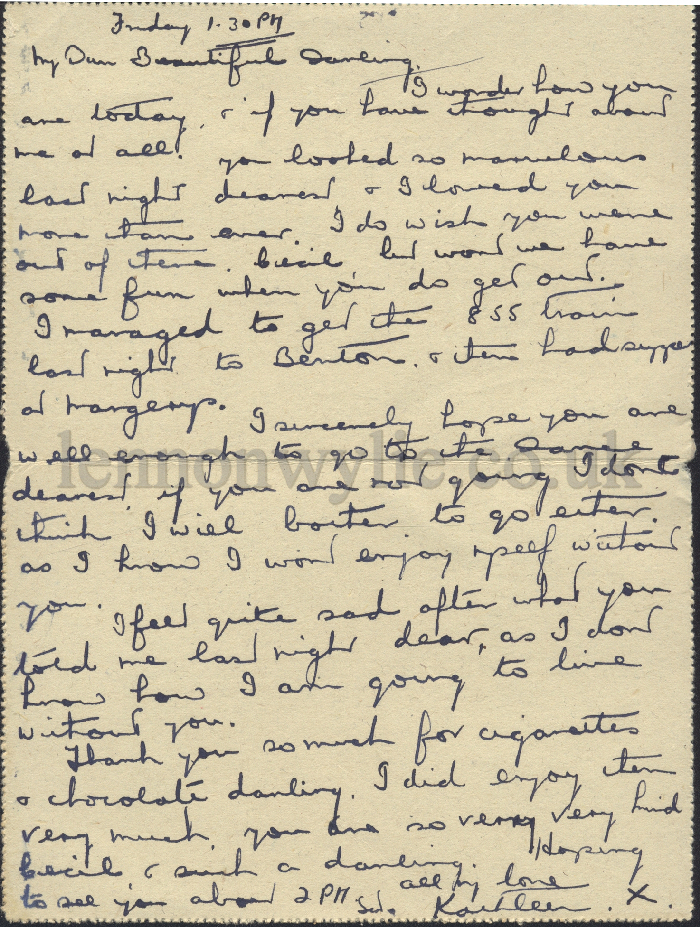 Friday 1.30 PM
My Own Beautiful Darling,
I wonder how you
are today, & if you have thought about
me at all. you looked so marvelous
last night dearest & I loved you
more than ever. I do wish you were
out of there. Cecil but wont we have
some fun when you do get out.
I managed to get the 8 55 train
last night to Benton, & then had supper
at Margerys.
I sincerely hope you are
well enough to go to the Dance
lennonwylie.co.uk
dearest, if you are not going I dont
think I will bother to go either.
as I know I wont enjoy myself without
you.
I feel quite sad after what you
told me last night dear, as I dont
know how I am going to live
without you.
Thank you so much for cigarettes
& chocolate darling. I did enjoy them
very much, you are so very very kind
Cecil & such a darling. Hoping
to see you about 2 PM Sat. all my love
Kathleen. X.